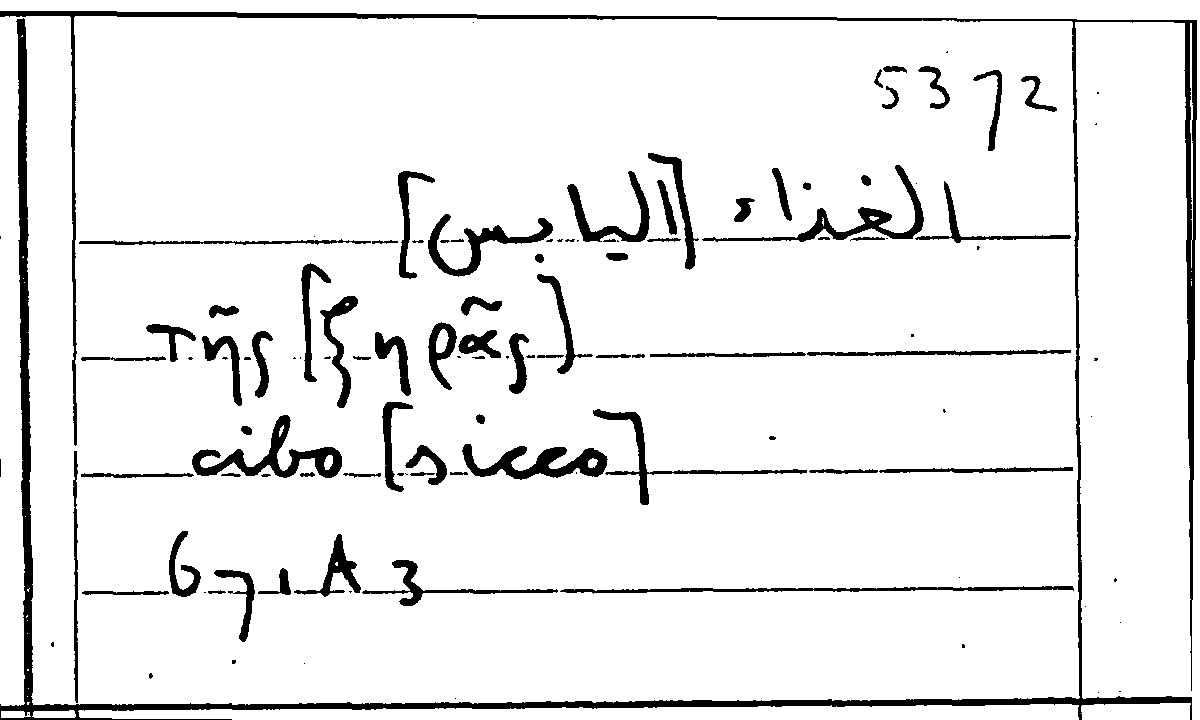 5372
الغذاء [اليابس]
τῆς [ξηρᾶς]
cibo [sicco]
671A3